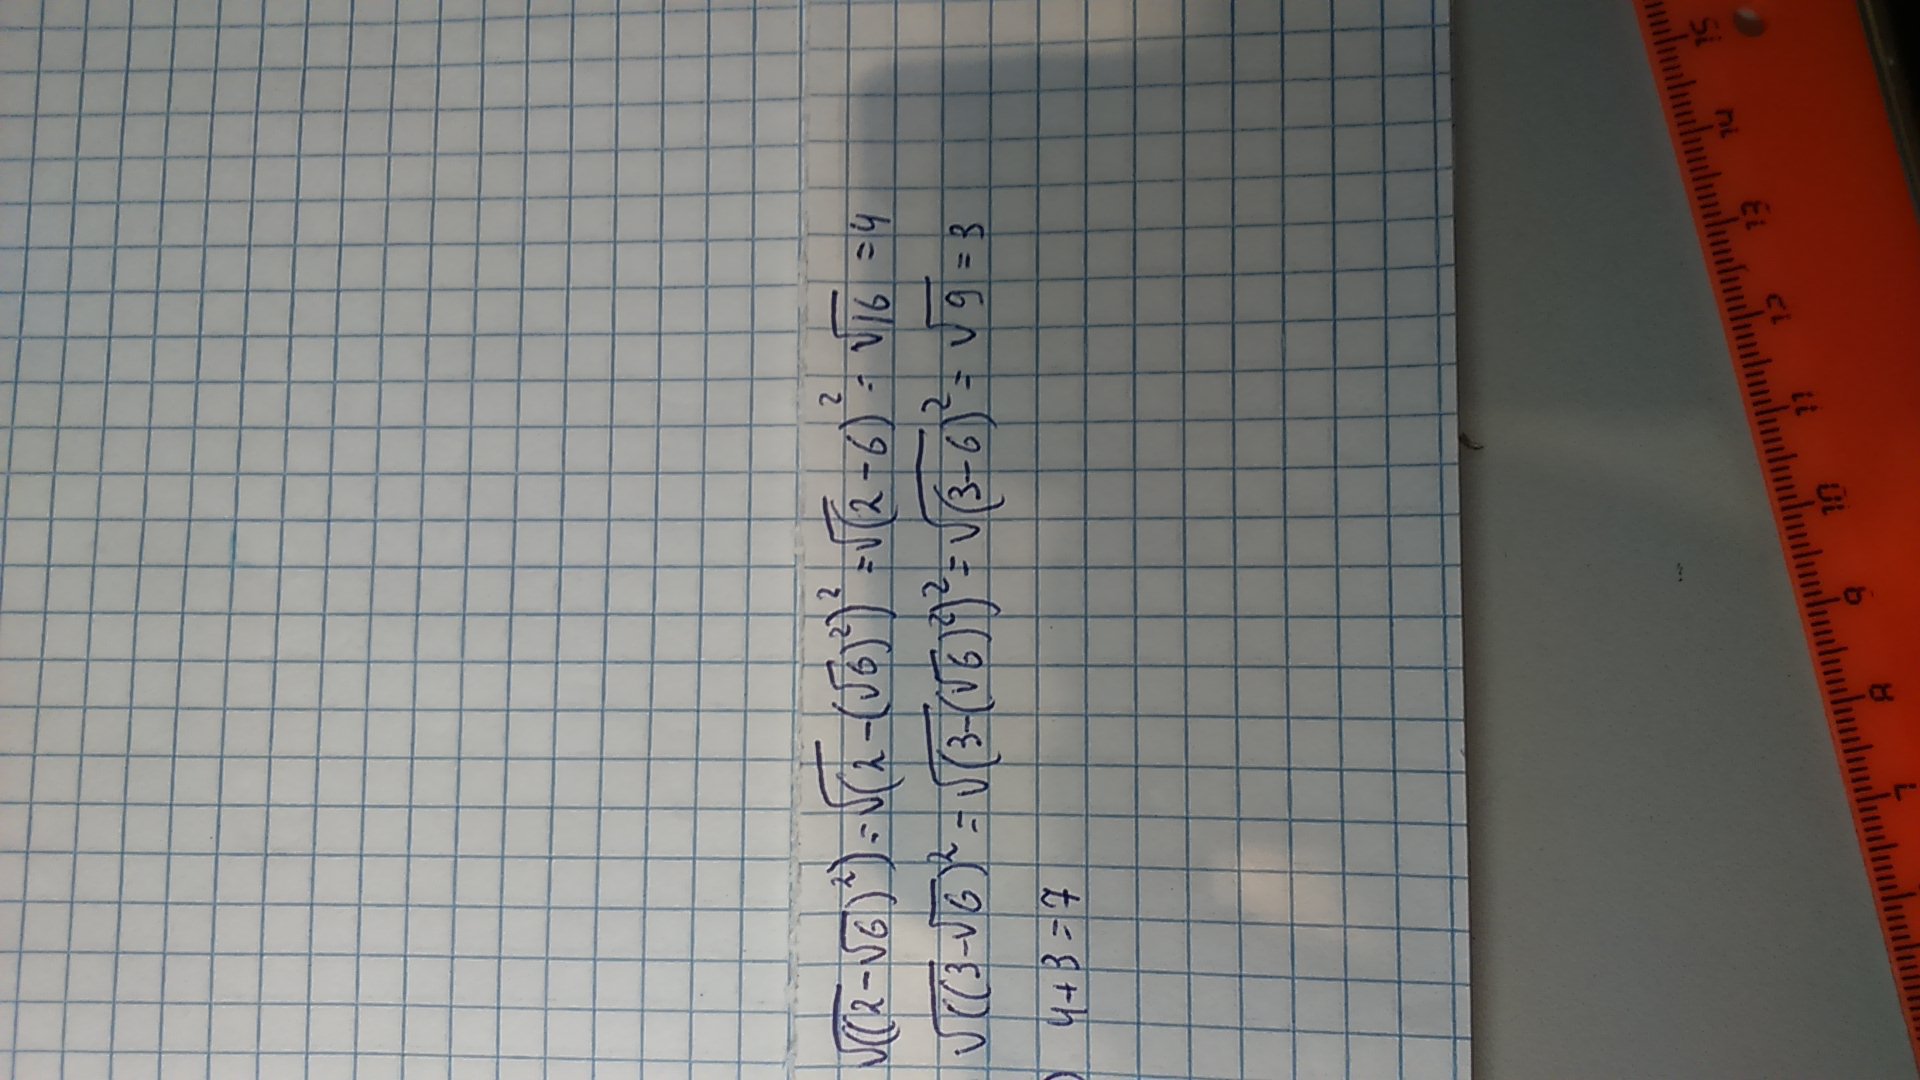 √((2-√6)²) = √(2-(√6)²)² = √(2-6)² = √16 = 4
√((3-√6)² = √(3-(√6)²)² = √(3-6)² = √9 = 3
) 4+3=7
7 8 9 10 11 12 13 14 15